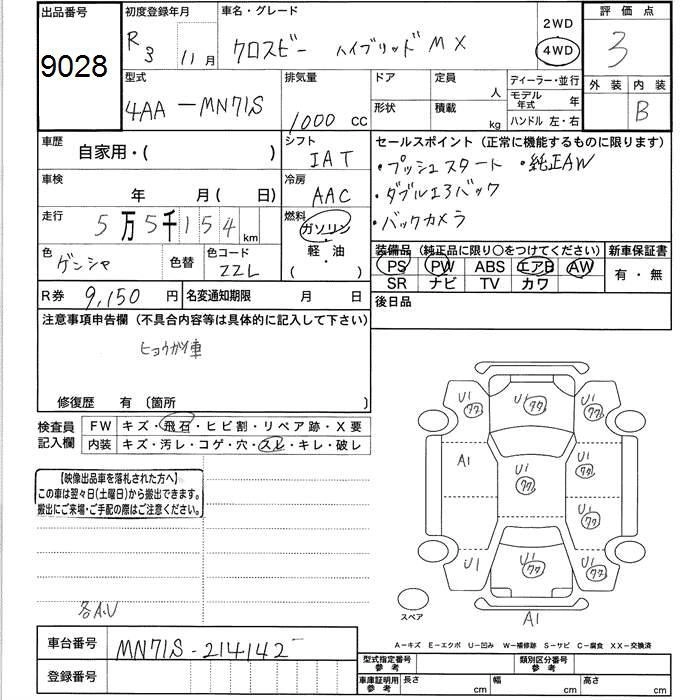 出品番号
9028
初度登録年月
R3 11月
車名・グレード
クロスビー ハイブリッドMX
2WD
4WD
評価点
3
外装 内装
B
型式
4AA-MN71S
排気量
1000 CC
ドア
定員 人
形状
積載 kg
ディーラー・並行
モデル年式 年
ハンドル 左・右
車歴 自家用・( )
シフト IAT
車検 年 月( 日)
冷房 AAC
走行 5万5千154 km
燃料 ガソリン・軽・油 ( )
色 ゲンシャ
色替
色コード ZZL
セールスポイント(正常に機能するものに限ります)
・プッシュスタート ・純正AW
・ダブルエアバック
・バックカメラ
装備品(純正品に限り○をつけてください)
新車保証書
PS PW ABS エアB AW
SR ナビ TV カワ
有・無
R券 9,150 円
名変通知期限 月 日
後日品
注意事項申告欄(不具合内容等は具体的に記入して下さい)
ヒョウガイ車
修復歴 有 〔箇所 〕
検査員記入欄
FW キズ・飛石・ヒビ割・リペア跡・X要
内装 キズ・汚レ・コゲ・穴・スレ・キレ・破レ
【映像出品車を落札された方へ】
この車は翌々日(土曜日)から搬出できます。
搬出にご来場・ご手配の際はご注意ください。
U1 77
U1 77
U1 77
A1
U1 77
U1 77
U1 77
U1
U1 77
U1 77
A1
スペア
各A.U
A-キズ E-エクボ U-凹み W-補修跡 S-サビ C-腐食 XX-交換済
車台番号 MN71S-214142
登録番号
型式指定番号 参考
類別区分番号 参考
車庫証明用 参考
長さ cm
幅 cm
高さ cm